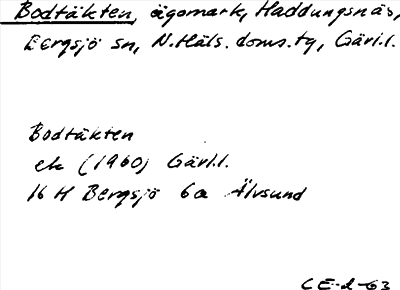 Bodtäkten, ägomark, Haddungsnäs,
Bergsjö sn, N. Häls. doms.tg, Gävl.l.
Bodtäkten
ek (1960) Gävl.l.
16 H Bergsjö 6a Älvsund
CE-d-63